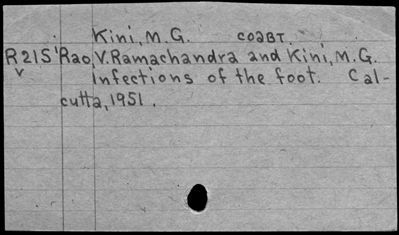 Kini, M.G. соавт.
R215 Rao, V. Ramachandra and Kini, M.G.
v Infections of the foot. Cal-
cutta, 1951.